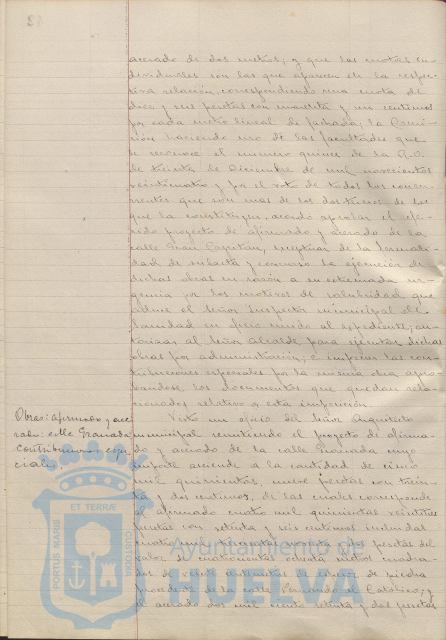 acerado de dos metros; y que las cuotas in-
dividuales son las que aparecen en la respec-
tiva relación, correspondiendo una cuota de
diez y seis pesetas con cuarenta y un centimos
por cada metro lineal de fachada; la Comi-
sión haciendo uso de las facultades que
le reconoce el numero quince de la R.O.
de treinta de Diciembre de mil novecientos
veinticuatro y por el voto de todos los concu-
rrentes que son mas de los dos tercios de los
que la constituyen, acordó aprobar el
proyecto de afirmado y acerado de la
calle Gran Capitán, exceptuar de la formali-
dad de subasta y concurso la ejecución de
dichas obras en razón a su extremada ur-
gencia por los motivos de salubridad que
aduce el Señor Inspector municipal de
Sanidad en oficio unido al expediente; au-
torizar al Señor Alcalde para ejecutar dichas
obras por administración; e imponer las con-
tribuciones especiales por la misma
los documentos que quedan rela-
cionados relativo a esta imposición.
Obras: afirmado y ace-
rado: calle Granada
contribuciones espe-
ciales.
Visto un oficio del Señor Arquitecto
municipal remitiendo el proyecto de afirma-
do y acerado de la calle Granada cuyo
importe asciende a la cantidad de cinco
mil quinientas nueve pesetas con trein-
ta y dos centimos, de las cuales corresponde
al afirmado cuatro mil quinientas
pesetas con setenta y seis centimos
pesetas del
valor de
de piedra
procedente de la calle Fernando el Católico; y
al acerado dos mil ciento setenta y dos pesetas
PORTUS MARIS ET TERRAE CUSTODIA
Ayuntamiento de
HUELVA